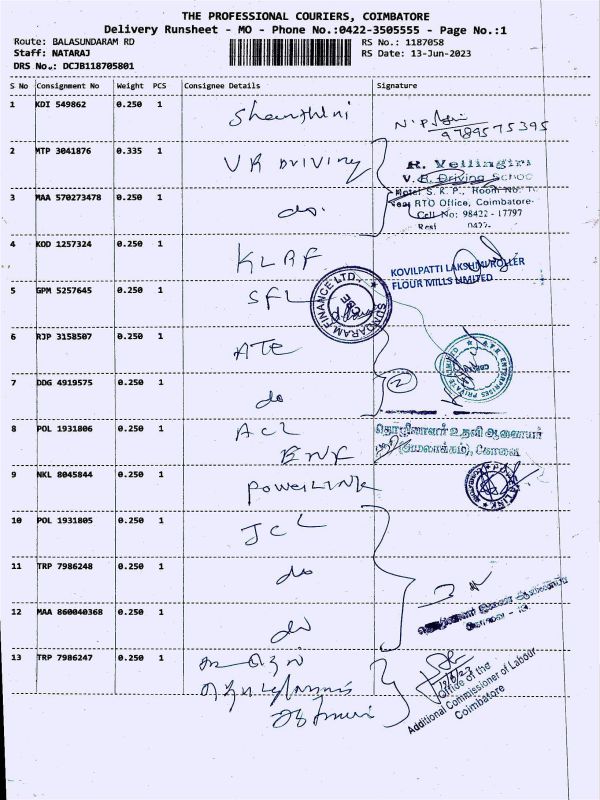 THE PROFESSIONAL COURIERS, COIMBATORE
Delivery Runsheet - MO - Phone No.:0422-3505555 - Page No.:1
Route: BALASUNDARAM RD
RS No.: 1187058
Staff: NATARAJ
RS Date: 13-Jun-2023
DRS No.: DCJB118705801
S No Consignment No Weight PCS Consignee Details Signature
1 KDI 549862 0.250 1 Shanthini
9789575395
2 MTP 3041876 0.335 1 VR Driving
R. Vellingiri
V. R. Driving School
Hotel S. K. P., Room No.
Near RTO Office, Coimbatore-
Cell No: 98422 - 17797
Resi 0422-
3 MAA 570273478 0.250 1 do.
4 KOD 1257324 0.250 1 KLRF
KOVILPATTI LAKSHMI ROLLER
FLOUR MILLS LIMITED
5 GPM 5257645 0.250 1 SFL
SUNDARAM FINANCE LTD.
6 RJP 3158507 0.250 1 ATE
A.T.E. ENTERPRISES PRIVATE LIMITED
7 DDG 4919575 0.250 1 do
2
8 POL 1931806 0.250 1 ACL
ENF
தொழிலாளர் உதவி ஆணையர்
(அமலாக்கம்), கோவை
9 NKL 8045844 0.250 1 POWERLINK
10 POL 1931805 0.250 1 JCL
11 TRP 7986248 0.250 1 do
12 MAA 860040368 0.250 1 do
13 TRP 7986247 0.250 1
13/6/23
Office of the
Additional Commissioner of Labour
Coimbatore